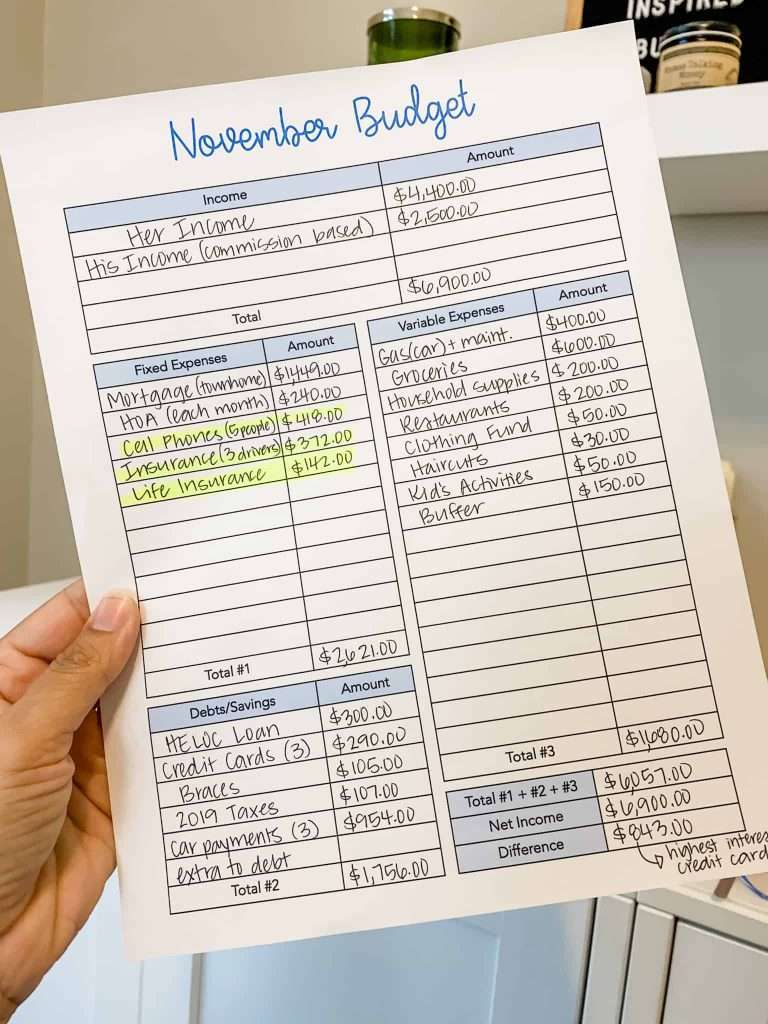 INSPIRED
BU
November Budget
Income Amount
Her Income $4,400.00
His Income (commission based) $2,500.00
Total $6,900.00
Fixed Expenses Amount
Mortgage (townhome) $1,449.00
HOA (each month) $240.00
Cell Phones (5 people) $418.00
Insurance (3 drivers) $372.00
Life Insurance $142.00
Total #1 $2,621.00
Variable Expenses Amount
Gas(car) + maint. $400.00
Groceries $600.00
Household Supplies $200.00
Restaurants $200.00
Clothing Fund $50.00
Haircuts $30.00
Kid's Activities $50.00
Buffer $150.00
Total #3 $1,680.00
Debts/Savings Amount
HELOC Loan $300.00
Credit Cards (3) $290.00
Braces $105.00
2019 Taxes $107.00
car payments (3) $954.00
extra to debt
Total #2 $1,756.00
Total #1 + #2 + #3 $6,057.00
Net Income $6,900.00
Difference $843.00
highest interes
credit card